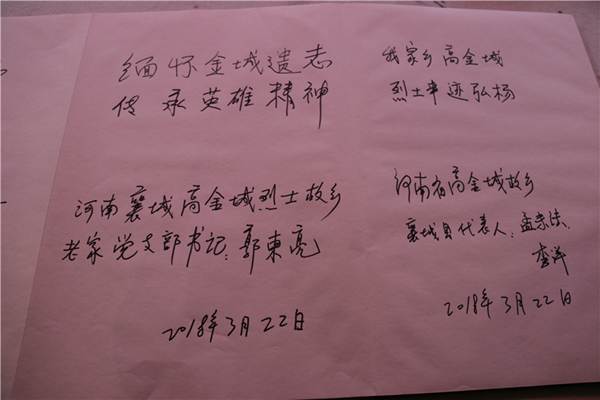 缅怀金城遗志
传承英雄精神
河南襄城高金城烈士故乡
老家党支部书记：郭東亮
2018年3月22日
我家乡高金城
烈士事迹弘杨
河南省高金城故乡
襄城县代表人：孟宗法、
李洋
2018年3月22日